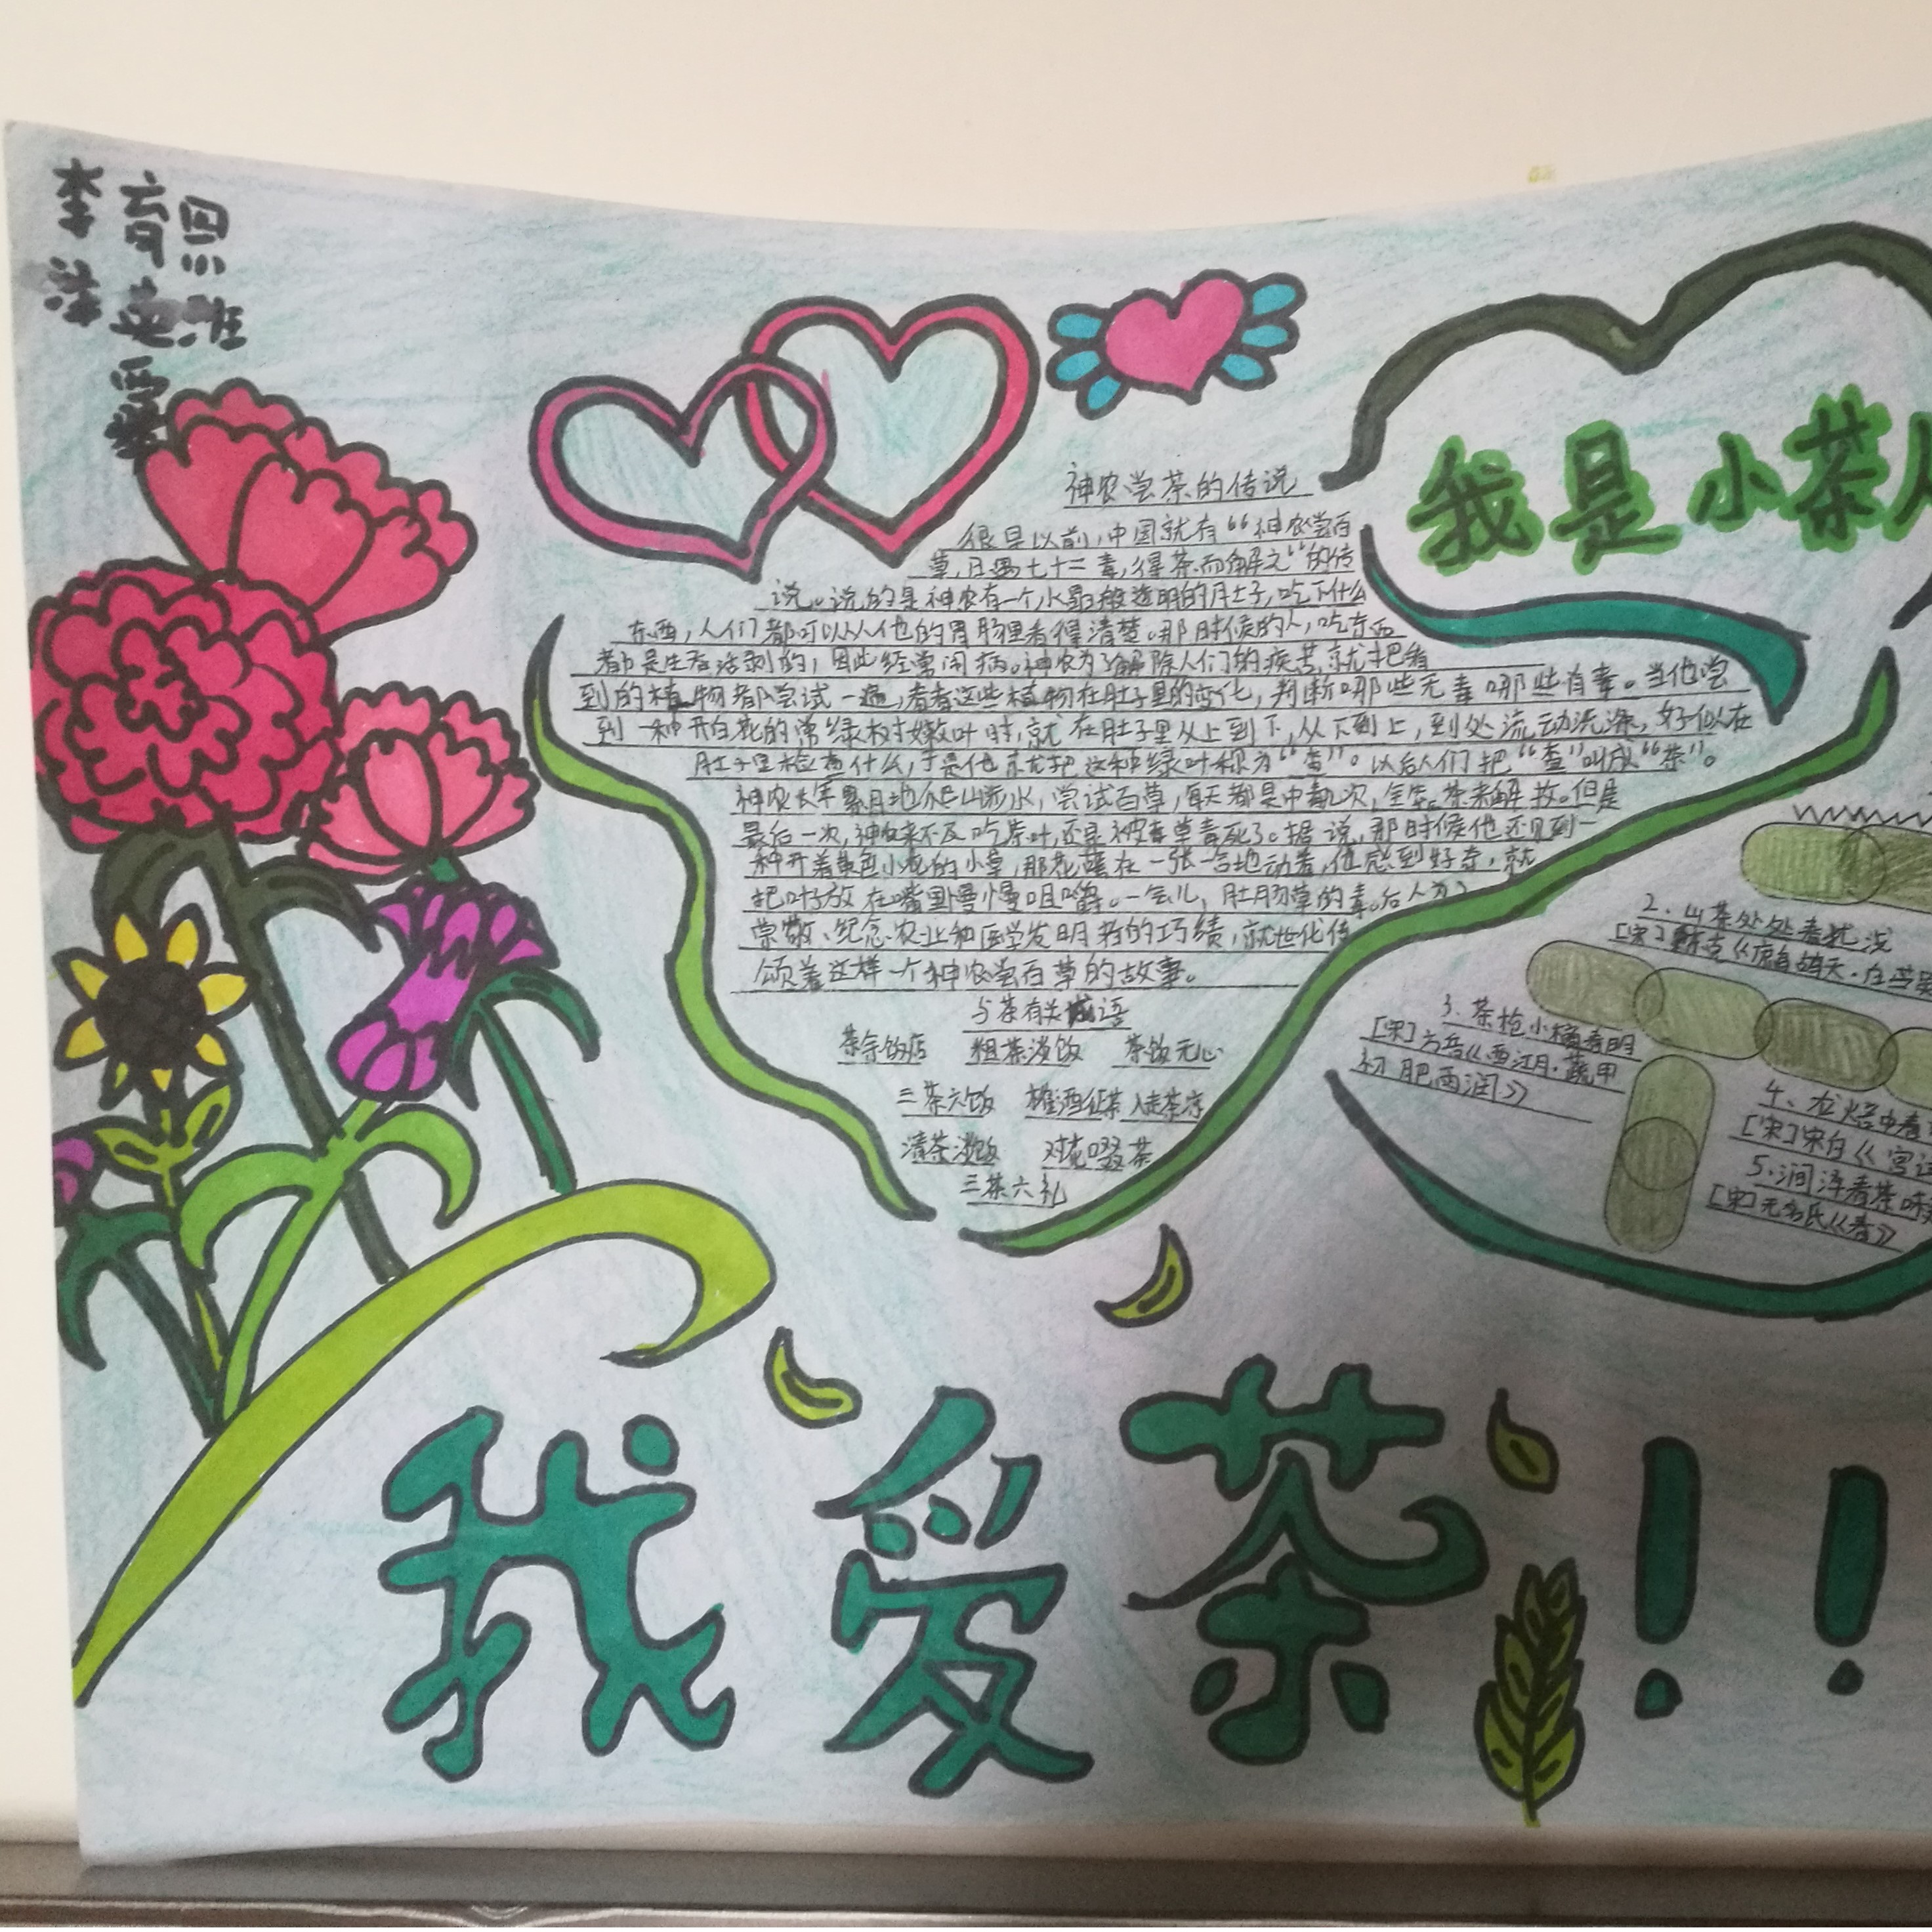 李
育英
思班
神农尝茶的传说
很早以前,中国就有“神农尝百
草,日遇七十二毒,得茶而解之”的传
说。说的是神农有一个水晶般透明的肚子,吃下什么
东西,人们都可以从他的胃肠里看得清楚。那时候的人,吃东西
都是生吞活剥的,因此经常闹病。神农为了解除人们的疾苦,就把看
到的植物都尝试一遍,看看这些植物在肚子里的变化,判断哪些无毒哪些有毒。当他尝
到一种开白花的常绿树嫩叶时,就在肚子里从上到下,从下到上,到处流动洗涤,好似在
肚子里检查什么,于是他就把这种绿叶称为“查”。以后人们把“查”叫成“茶”。
神农长年累月地爬山涉水,尝试百草,每天都是中毒几次,全靠茶来解救。但是
最后一次,神农来不及吃茶叶,还是被毒草毒死了。据说,那时候他还见到一
种开着黄色小花的小草,那花蕾在一张一合地动着,他感到好奇,就
把叶子放在嘴里慢慢咀嚼。一会儿,肚肠草的毒。后人为了
崇敬、纪念农业和医学发明者的巧绩,就世代传
颂着这样一个神农尝百草的故事。
与茶有关成语
茶余饭后 粗茶淡饭 茶饭无心
三茶六饭 榷酒征茶 人走茶凉
清茶淡饭 对花啜茶
三茶六礼
我是小茶人
2、山茶处处春犹浅
[宋]
3、茶枪小摘春明
[宋]方岳《西江月·蔬甲
初肥雨润》
4、龙焙中春
[宋]宋白《宫词
5、涧泽春茶味
[宋]无名氏《春》
我爱茶!!